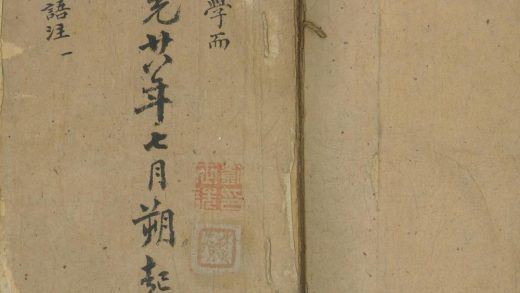 學而
光廿八年七月朔起
語注一